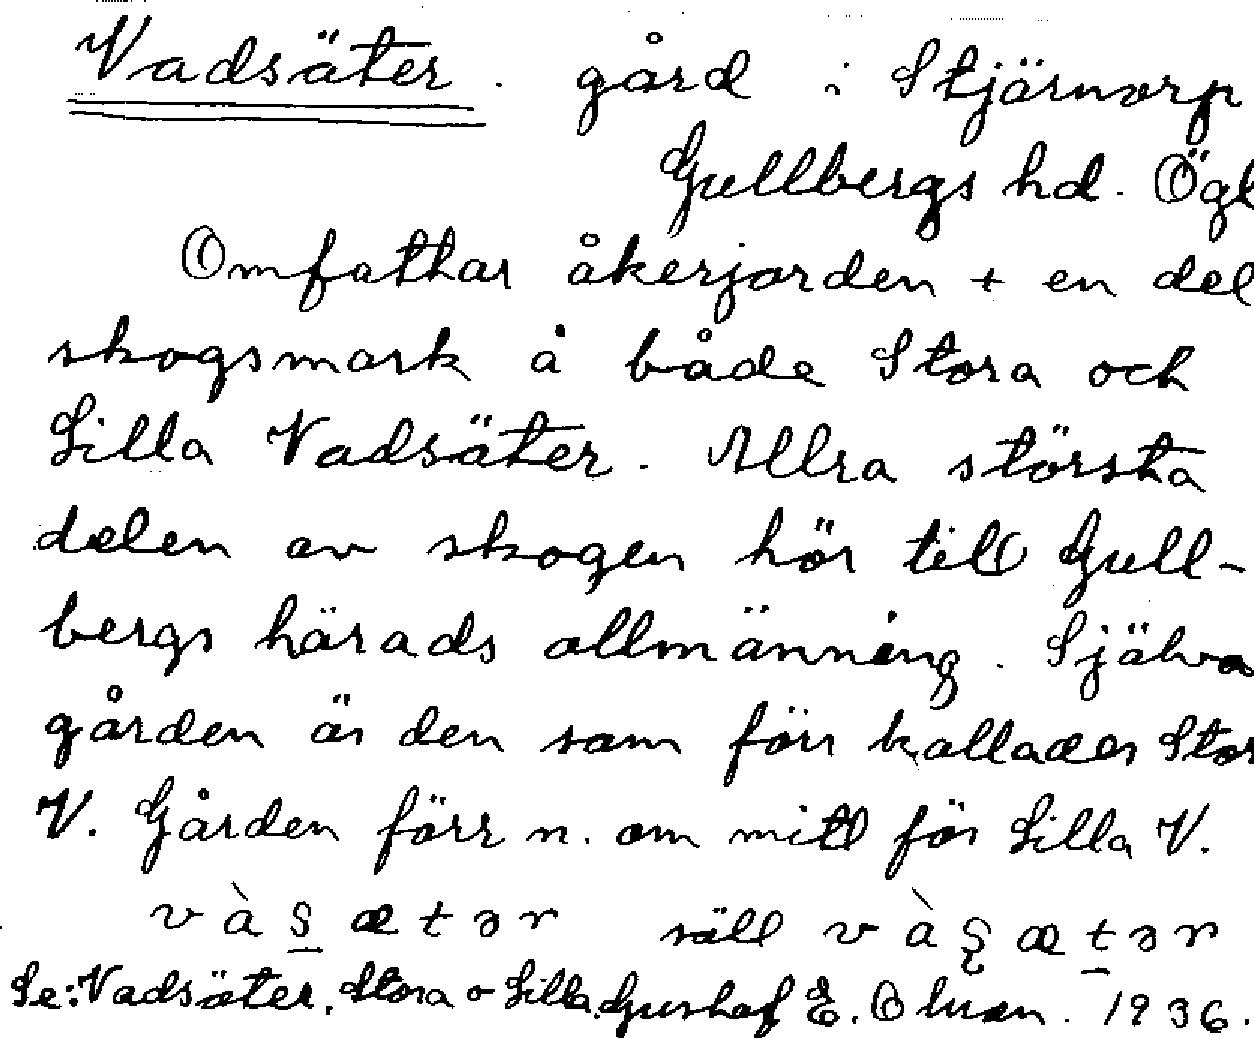 Vadsäter. gård i Stjärnorp
Gullbergs hd. Ögl
Omfattar åkerjorden + en del
skogsmark å både Stora och
Lilla Vadsäter. Allra största
delen av skogen hör till Gull-
bergs härads allmänning. Själva
gården är den som förr kallades Stor
V. Gården förr n. om mitt för Lilla V.
säll
Se: Vadsäter, Stora o Lilla. Gustaf E. Olson. 1936.